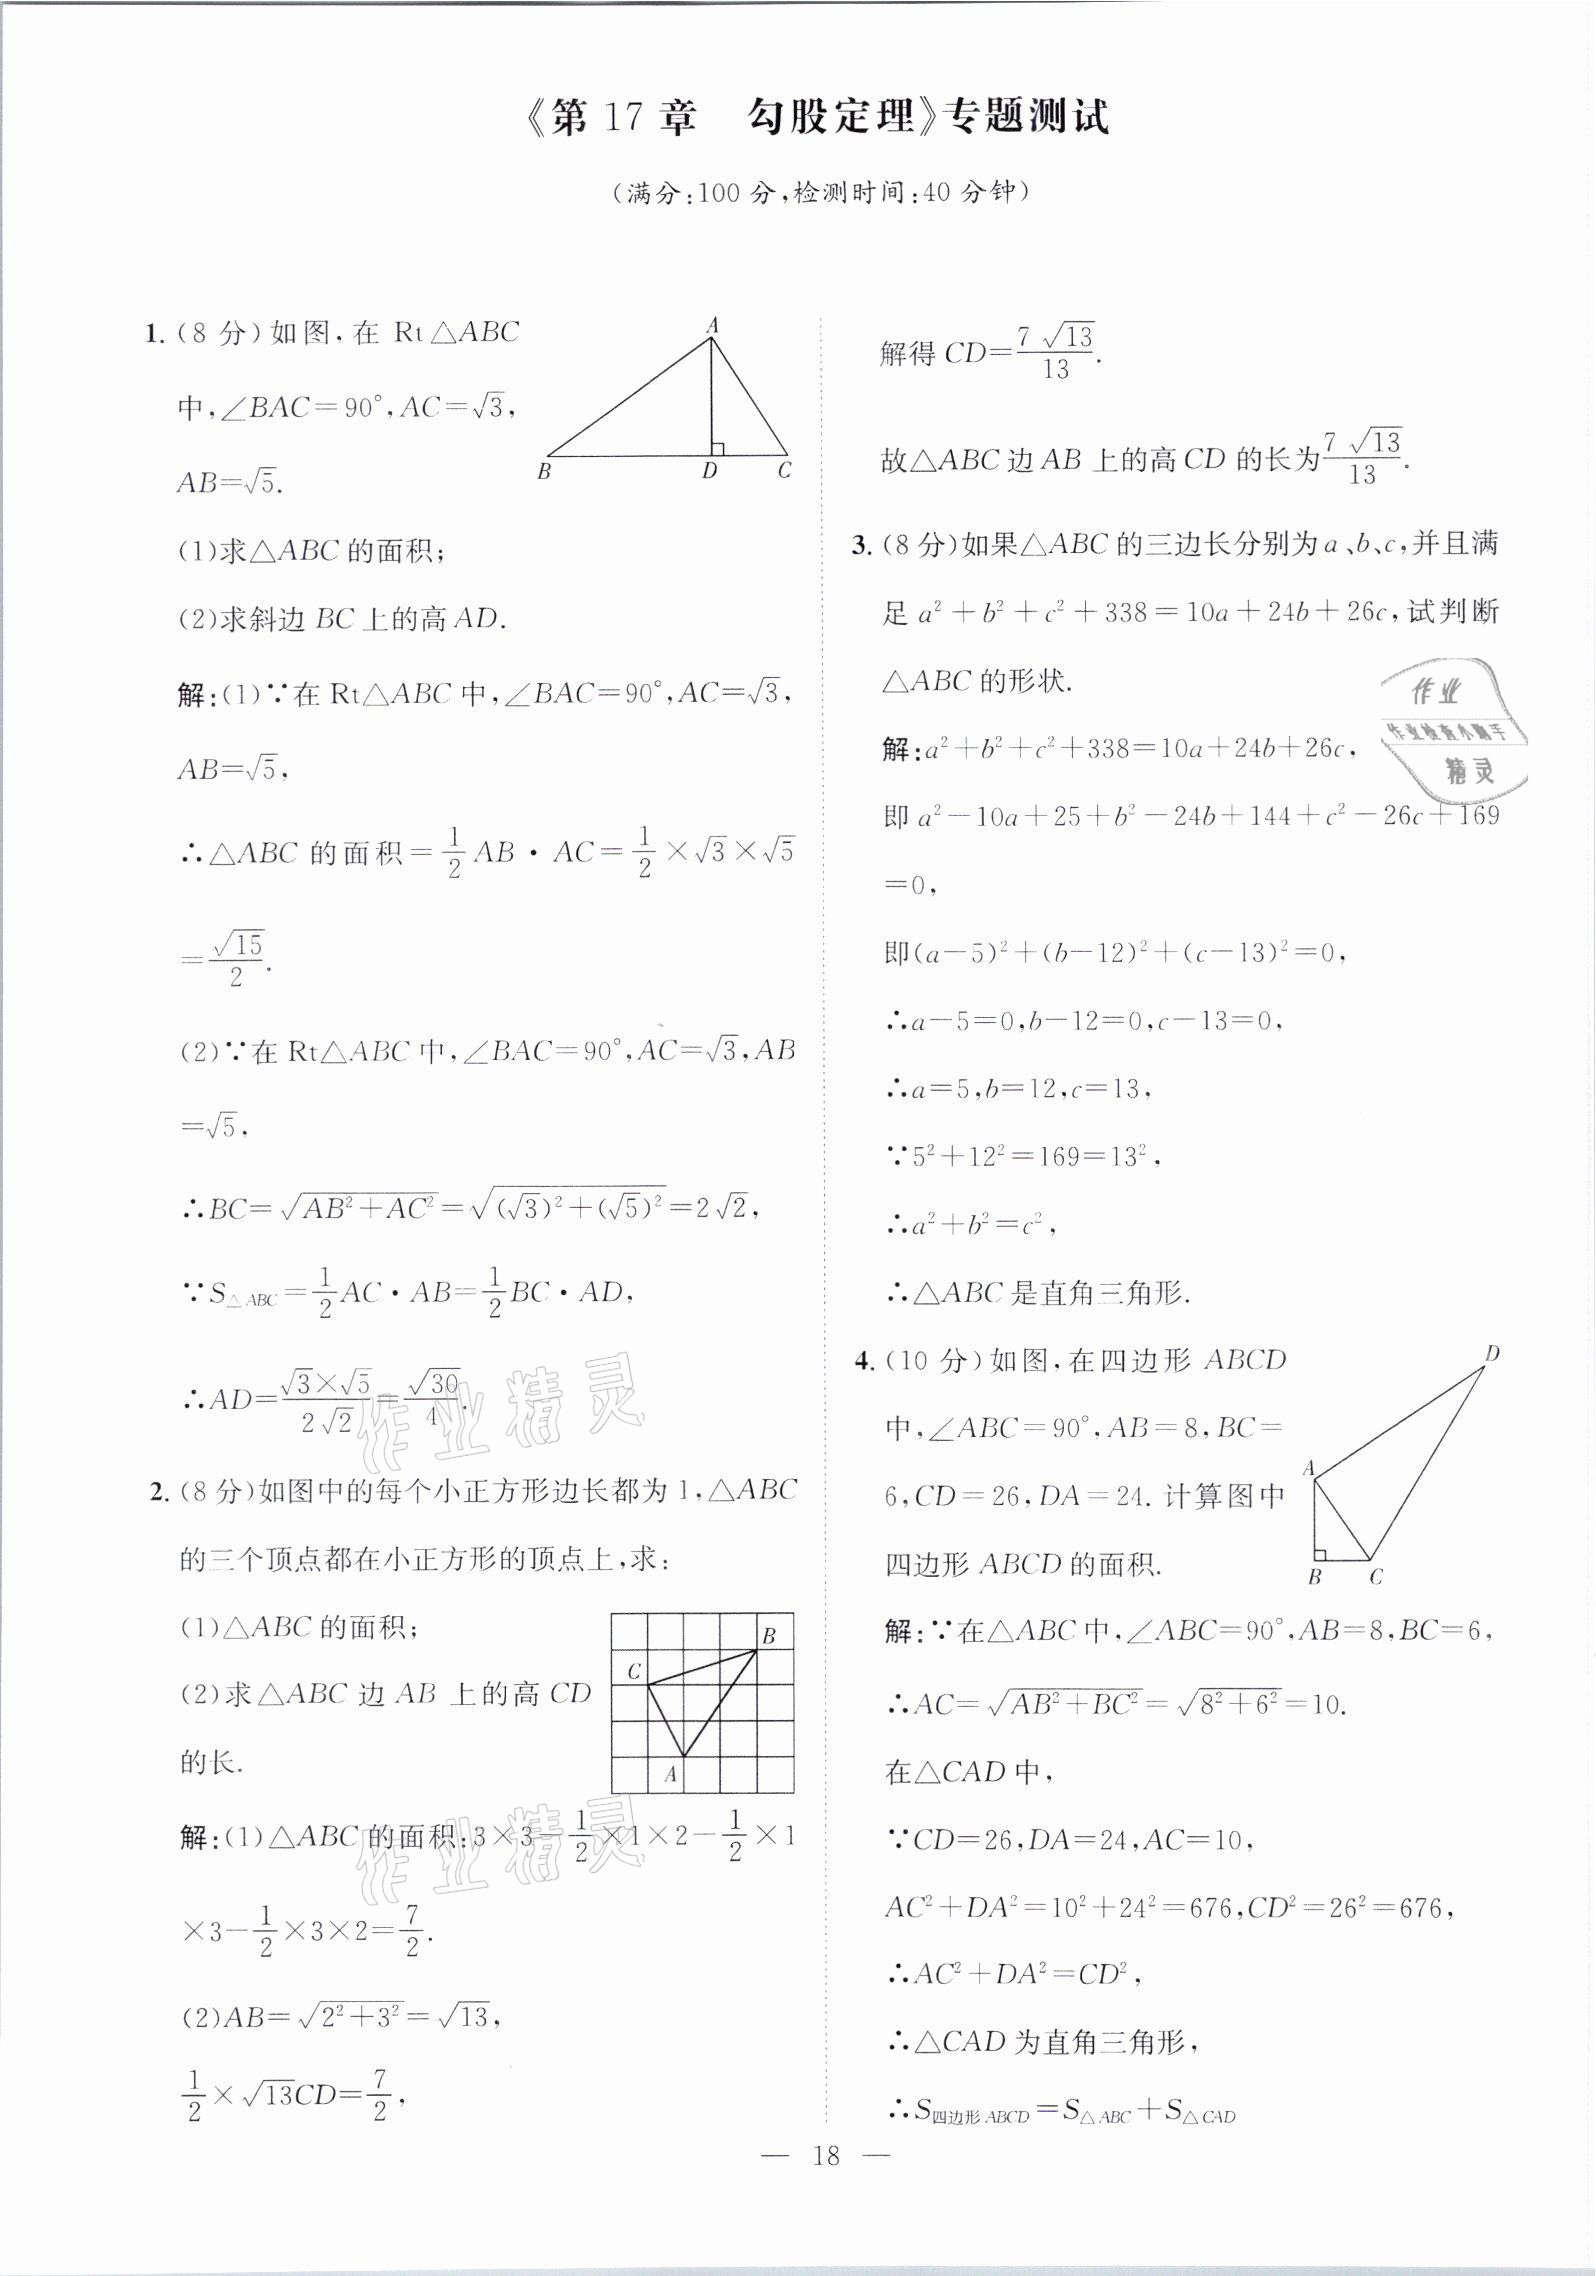 《第 17 章　勾股定理》专题测试
(满分:100 分,检测时间:40 分钟)
1. (8 分)如图,在 Rt△ABC
中,∠BAC=90°,AC=√3,
AB=√5.
(1)求△ABC 的面积;
(2)求斜边 BC 上的高 AD.
A
B
D
C
解:(1)∵在 Rt△ABC 中,∠BAC=90°,AC=√3,
AB=√5,
∴△ABC 的面积=1/2 AB·AC=1/2×√3×√5
=√15/2.
(2)∵在 Rt△ABC 中,∠BAC=90°,AC=√3,AB
=√5,
∴BC=√(AB²+AC²)=√((√3)²+(√5)²)=2√2,
∵S△ABC=1/2 AC·AB=1/2 BC·AD,
∴AD=(√3×√5)/(2√2)=√30/4.
2. (8 分)如图中的每个小正方形边长都为 1,△ABC
的三个顶点都在小正方形的顶点上,求:
(1)△ABC 的面积;
(2)求△ABC 边 AB 上的高 CD
的长.
B
C
A
解:(1)△ABC 的面积:3×3−1/2×1×2−1/2×1
×3−1/2×3×2=7/2.
(2)AB=√(2²+3²)=√13,
1/2×√13CD=7/2,
解得 CD=7√13/13.
故△ABC 边 AB 上的高 CD 的长为7√13/13.
3. (8 分)如果△ABC 的三边长分别为 a、b、c,并且满
足 a²+b²+c²+338=10a+24b+26c,试判断
△ABC 的形状.
解:a²+b²+c²+338=10a+24b+26c,
即 a²−10a+25+b²−24b+144+c²−26c+169
=0,
即(a−5)²+(b−12)²+(c−13)²=0,
∴a−5=0,b−12=0,c−13=0,
∴a=5,b=12,c=13,
∵5²+12²=169=13²,
∴a²+b²=c²,
∴△ABC 是直角三角形.
4. (10 分)如图,在四边形 ABCD
中,∠ABC=90°,AB=8,BC=
6,CD=26,DA=24. 计算图中
四边形 ABCD 的面积.
D
A
B
C
解:∵在△ABC 中,∠ABC=90°,AB=8,BC=6,
∴AC=√(AB²+BC²)=√(8²+6²)=10.
在△CAD 中,
∵CD=26,DA=24,AC=10,
AC²+DA²=10²+24²=676,CD²=26²=676,
∴AC²+DA²=CD²,
∴△CAD 为直角三角形,
∴S四边形ABCD=S△ABC+S△CAD
— 18 —
作业
作业检查小助手
精灵
作业精灵
作业精灵